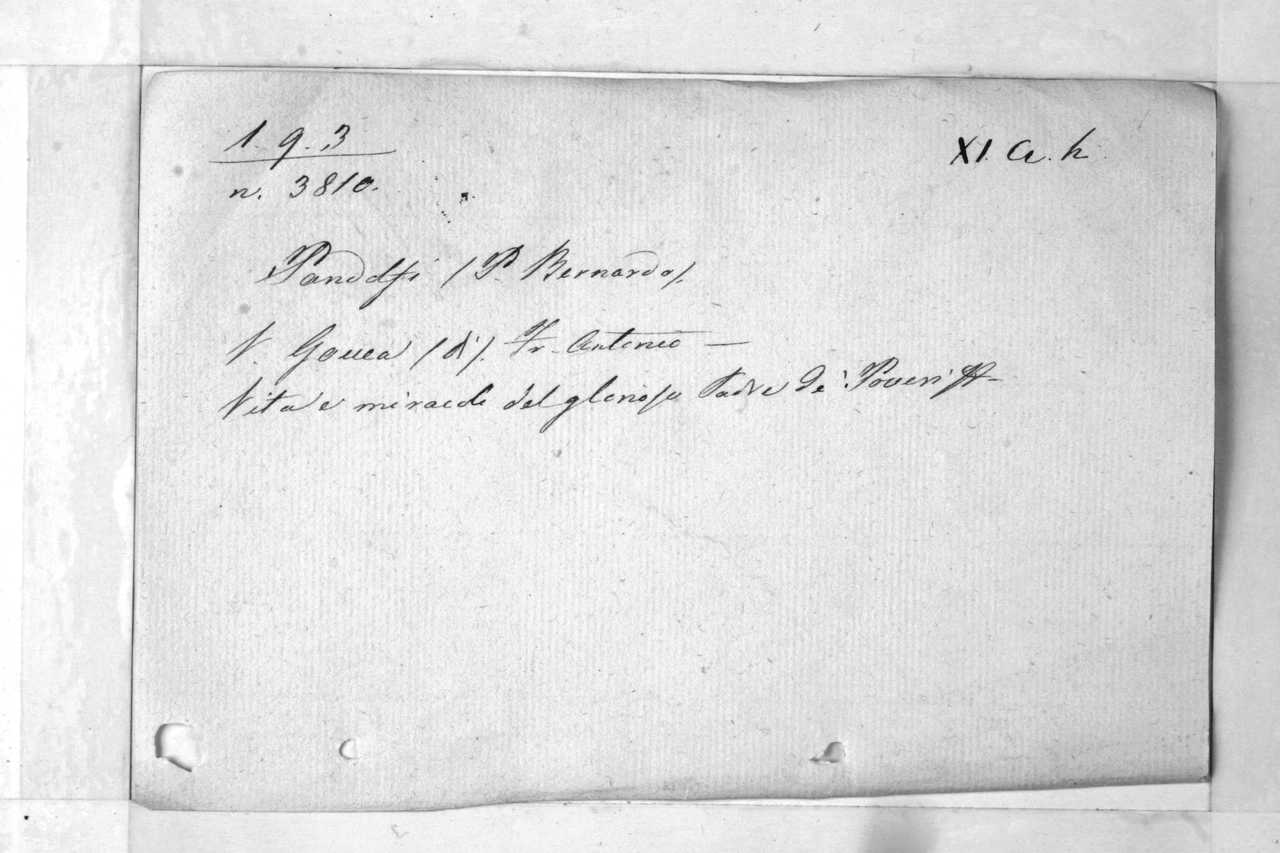 1. 9. 3
XI. A. h
n. 3810.
Pandolfi (P. Bernardo).
V. Gouea (di). Fr. Antonio —
Vita e miracoli del glorioso Padre de' Poveri